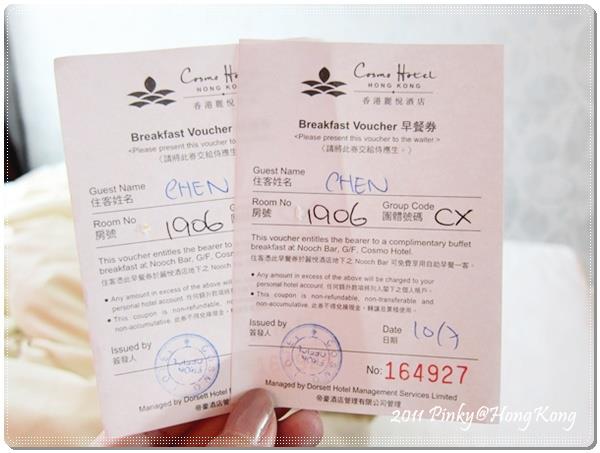 Cosmo Hotel
HONG KONG
香港麗悅酒店
Breakfast Voucher
<Please present this voucher to the
〈請將此券交給侍應生
Guest Name
住客姓名
CHEN
Room No
房號
1906
This voucher entitles the bearer to a
breakfast at Nooch Bar, G/F, Cosmo
住客憑此早餐券於麗悅酒店地下之
Any amount in excess of the above
personal hotel account. 任何額外款項
This coupon is non-refundable,
non-accumulative. 此券不得兌換現金
Issued by
簽發人
Managed by Dorsett Hotel
帝豪酒店管理有限
Cosmo Hotel
HONG KONG
香港麗悅酒店
Breakfast Voucher 早餐券
<Please present this voucher to the waiter.>
〈請將此券交給侍應生。〉
Guest Name
住客姓名
CHEN
Room No
房號
1906
Group Code
團體號碼
CX
This voucher entitles the bearer to a complimentary buffet
breakfast at Nooch Bar, G/F, Cosmo Hotel.
住客憑此早餐券於麗悅酒店地下之 Nooch Bar 可免費享用自助早餐一客。
Any amount in excess of the above will be charged to your
personal hotel account. 任何額外款項將列入閣下之個人帳戶。
This coupon is non-refundable, non-transferable and
non-accumulative. 此券不得兌換現金、轉讓及累積使用。
Issued by
簽發人
Date
日期
10/7
No: 164927
Managed by Dorsett Hotel Management Services Limited
帝豪酒店管理有限公司管理
2011 Pinky@HongKong